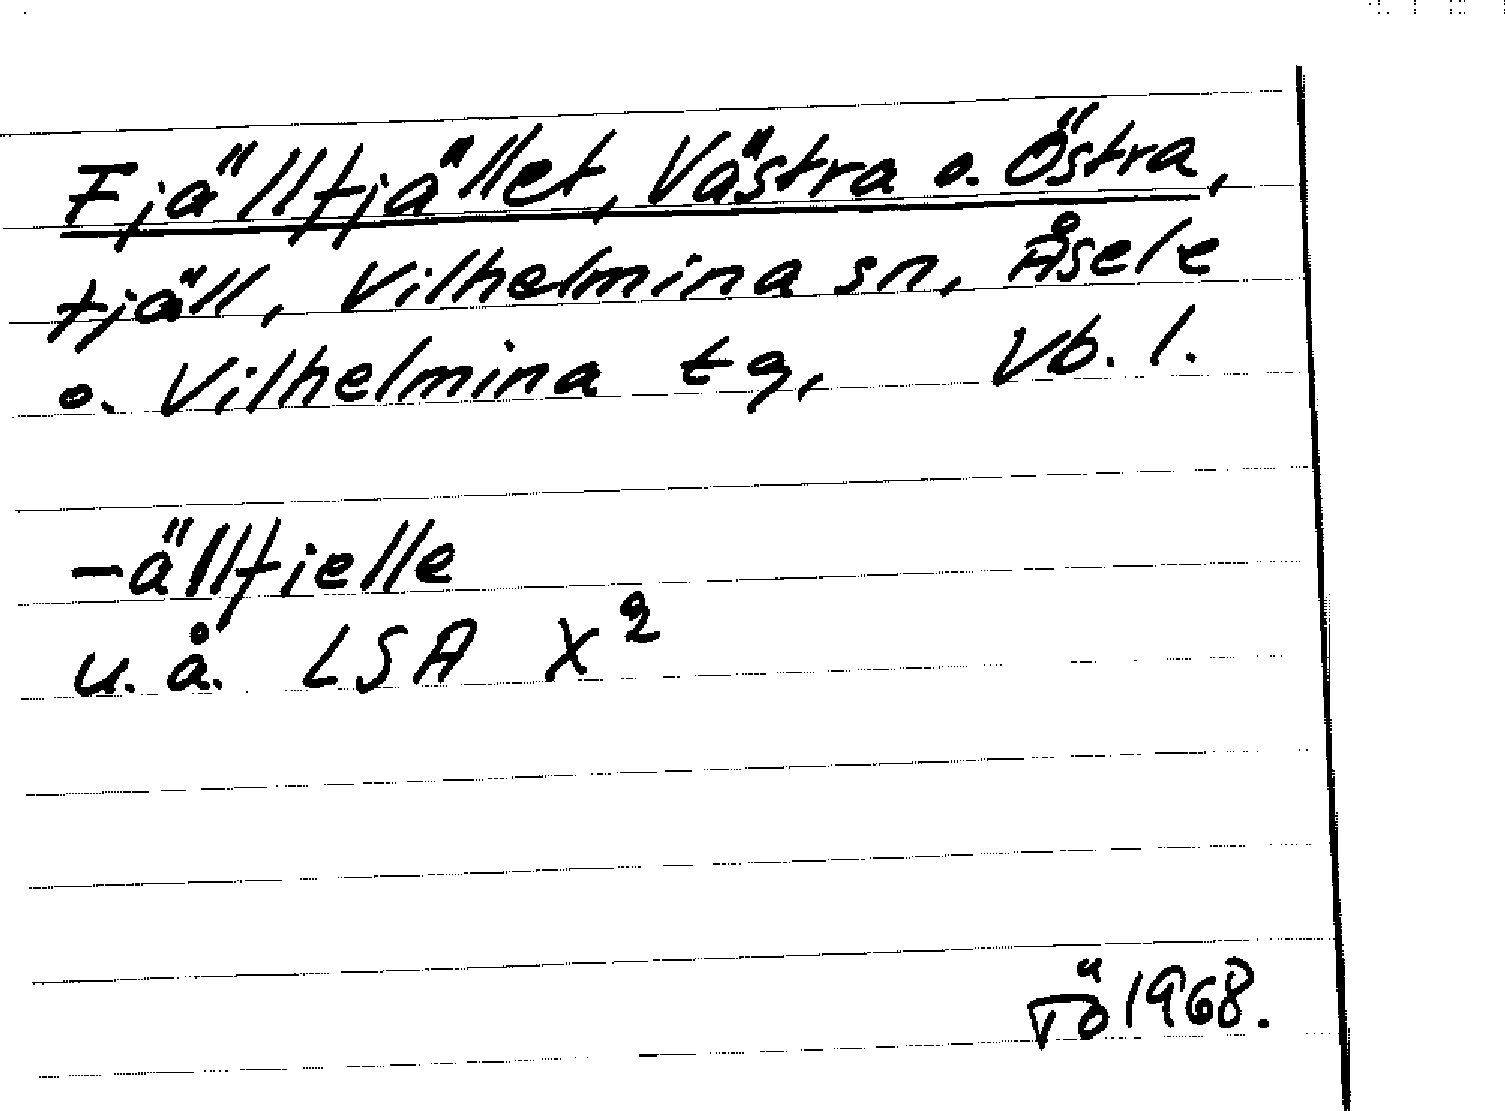 Fjällfjället, Västra o. Östra,
fjäll, Vilhelmina sn, Åsele
o. Vilhelmina tg, Vb. l.
-ällfjelle
u.å. LSA X²
1968.